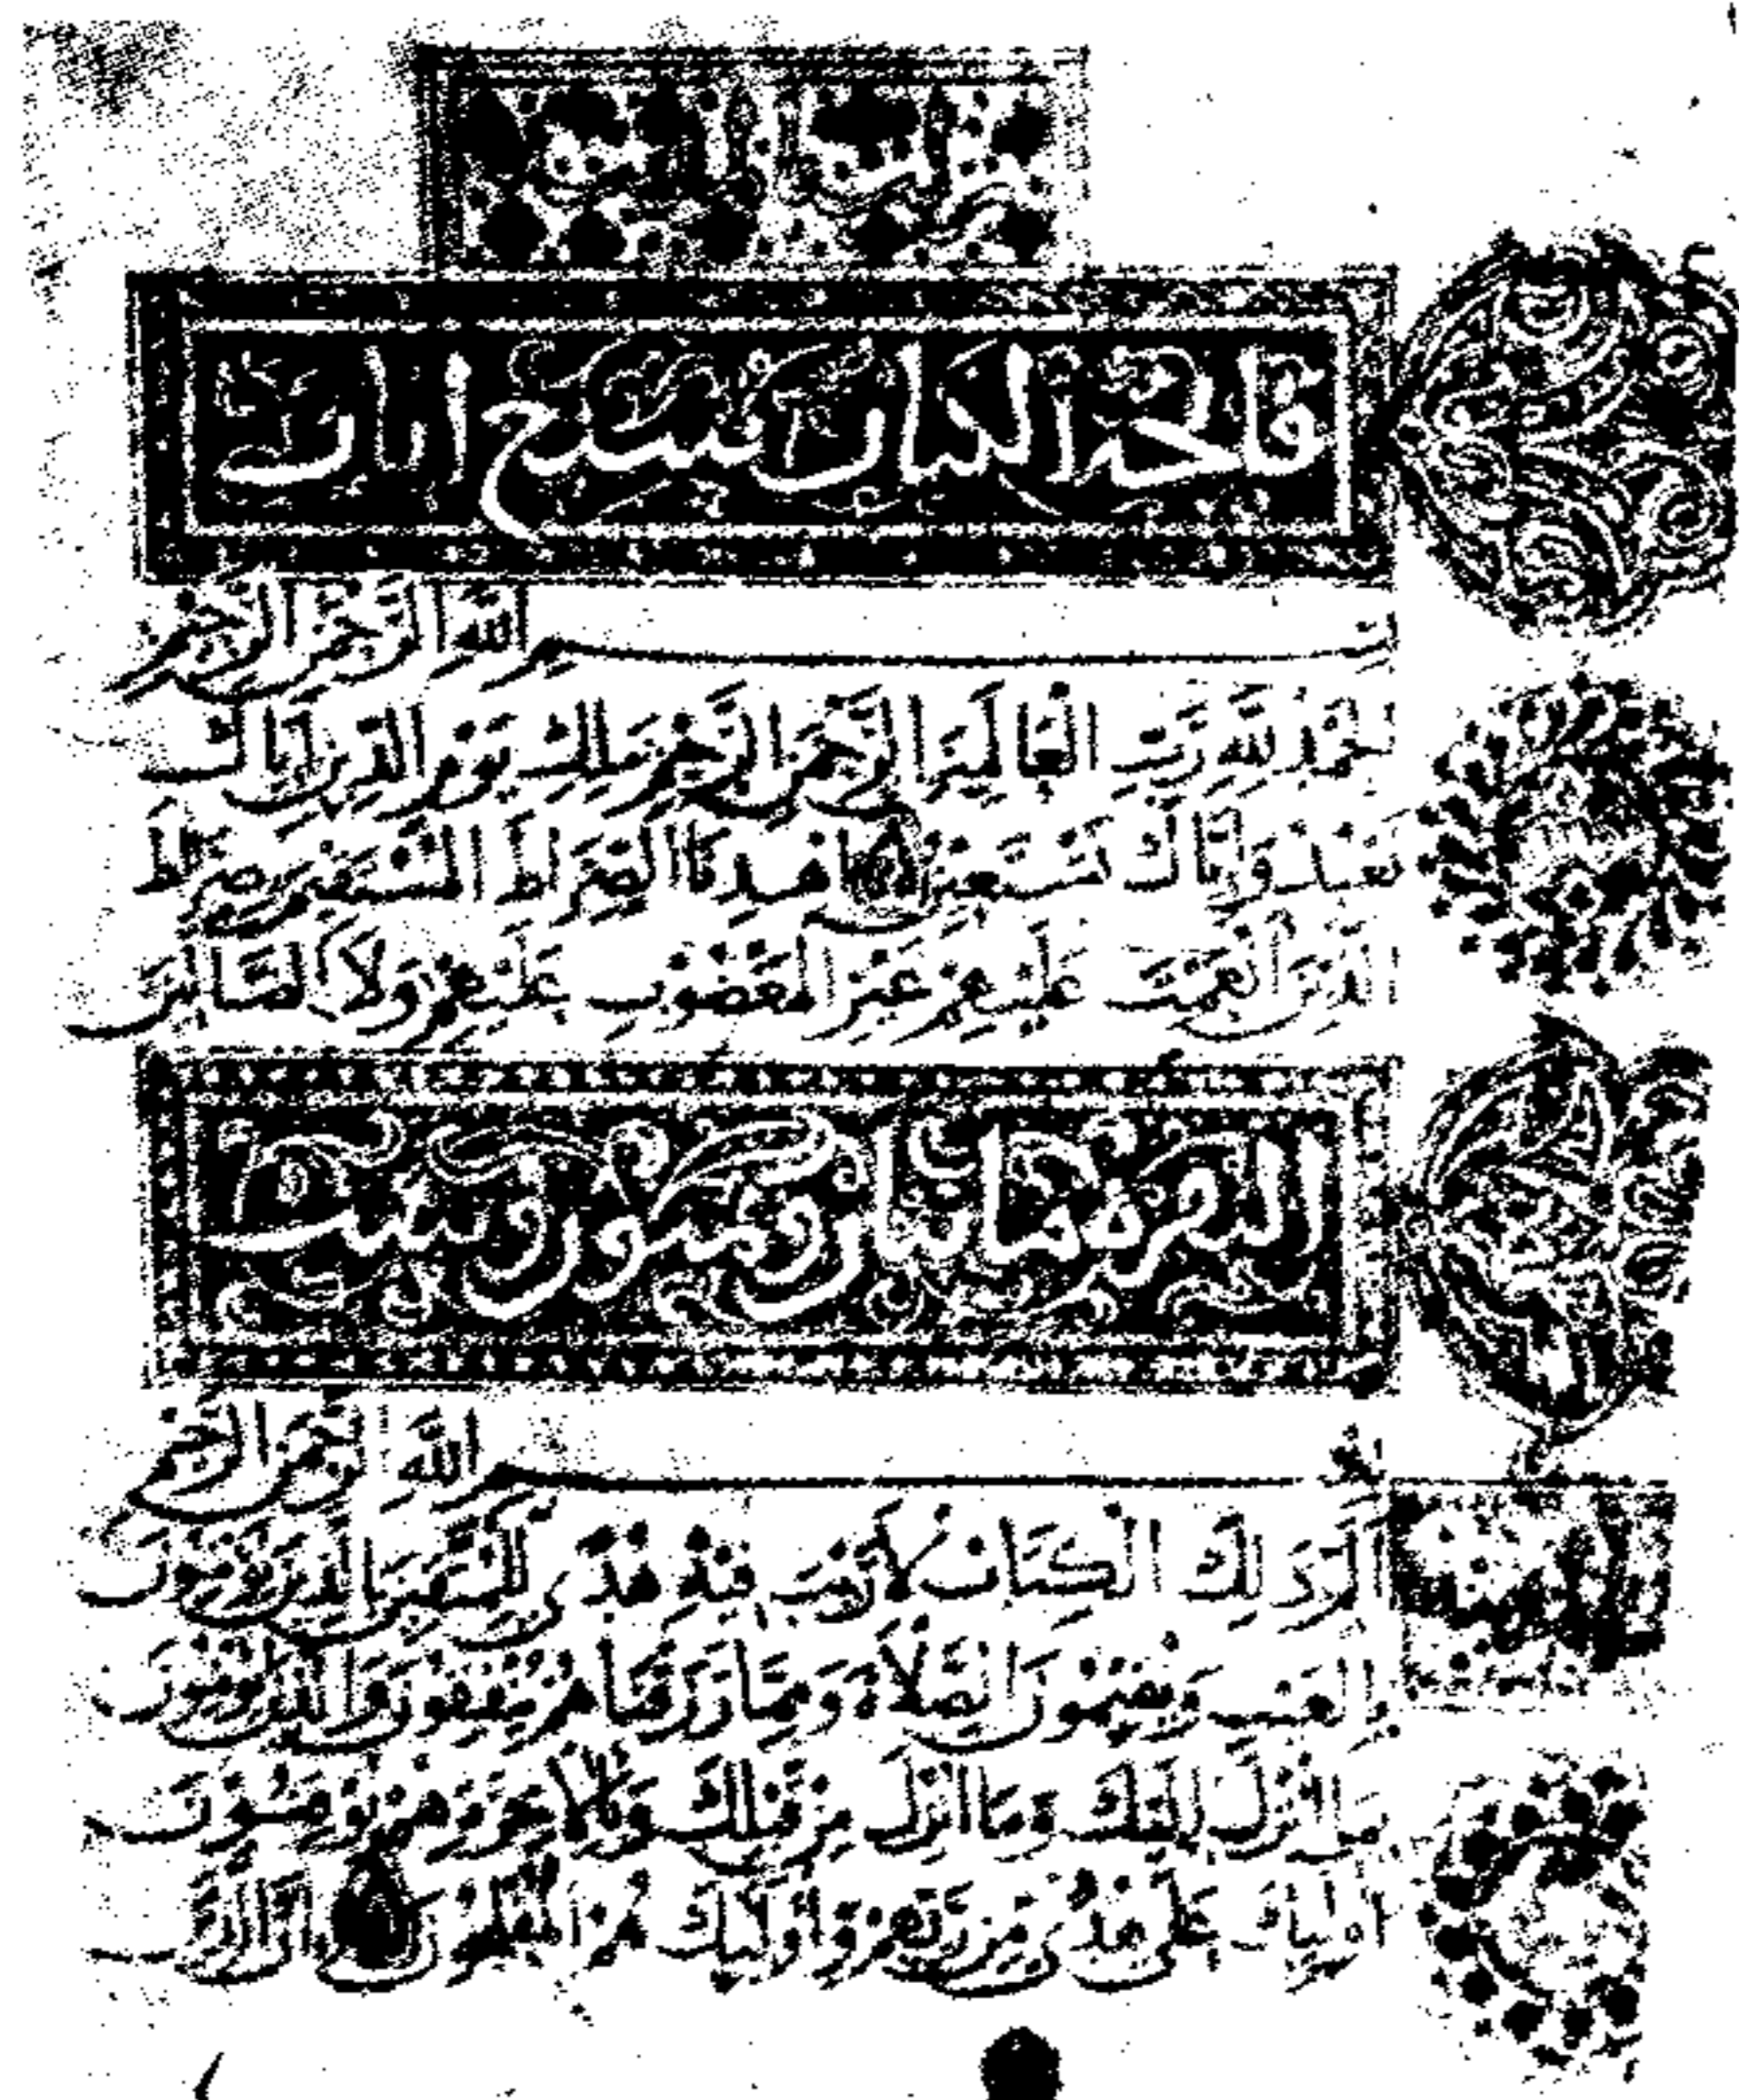 فاتحة الكتاب سبع ايات
بسم الله الرحمن الرحيم
الحمد لله رب العالمين الرحمن الرحيم ملك يوم الدين اياك
نعبد واياك نستعين اهدنا الصراط المستقيم صراط
الذين انعمت عليهم غير المغضوب عليهم ولا الضالين
البقرة مايتان وست
بسم الله الرحمن الرحيم
الم ذلك الكتاب لا ريب فيه هدى للمتقين الذين يؤمنون
بالغيب ويقيمون الصلاة ومما رزقناهم ينفقون والذين يؤمنون
بما انزل اليك وما انزل من قبلك وبالاخرة هم يوقنون
اوليك على هدى من ربهم واوليك هم المفلحون ان الذين